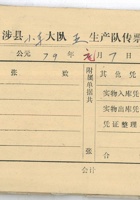 涉县小车大队五生产队传票
公元79年元月7日
张数
附属单据共
其他凭
实物入库凭
实物出库凭
凭证整理
张
会计